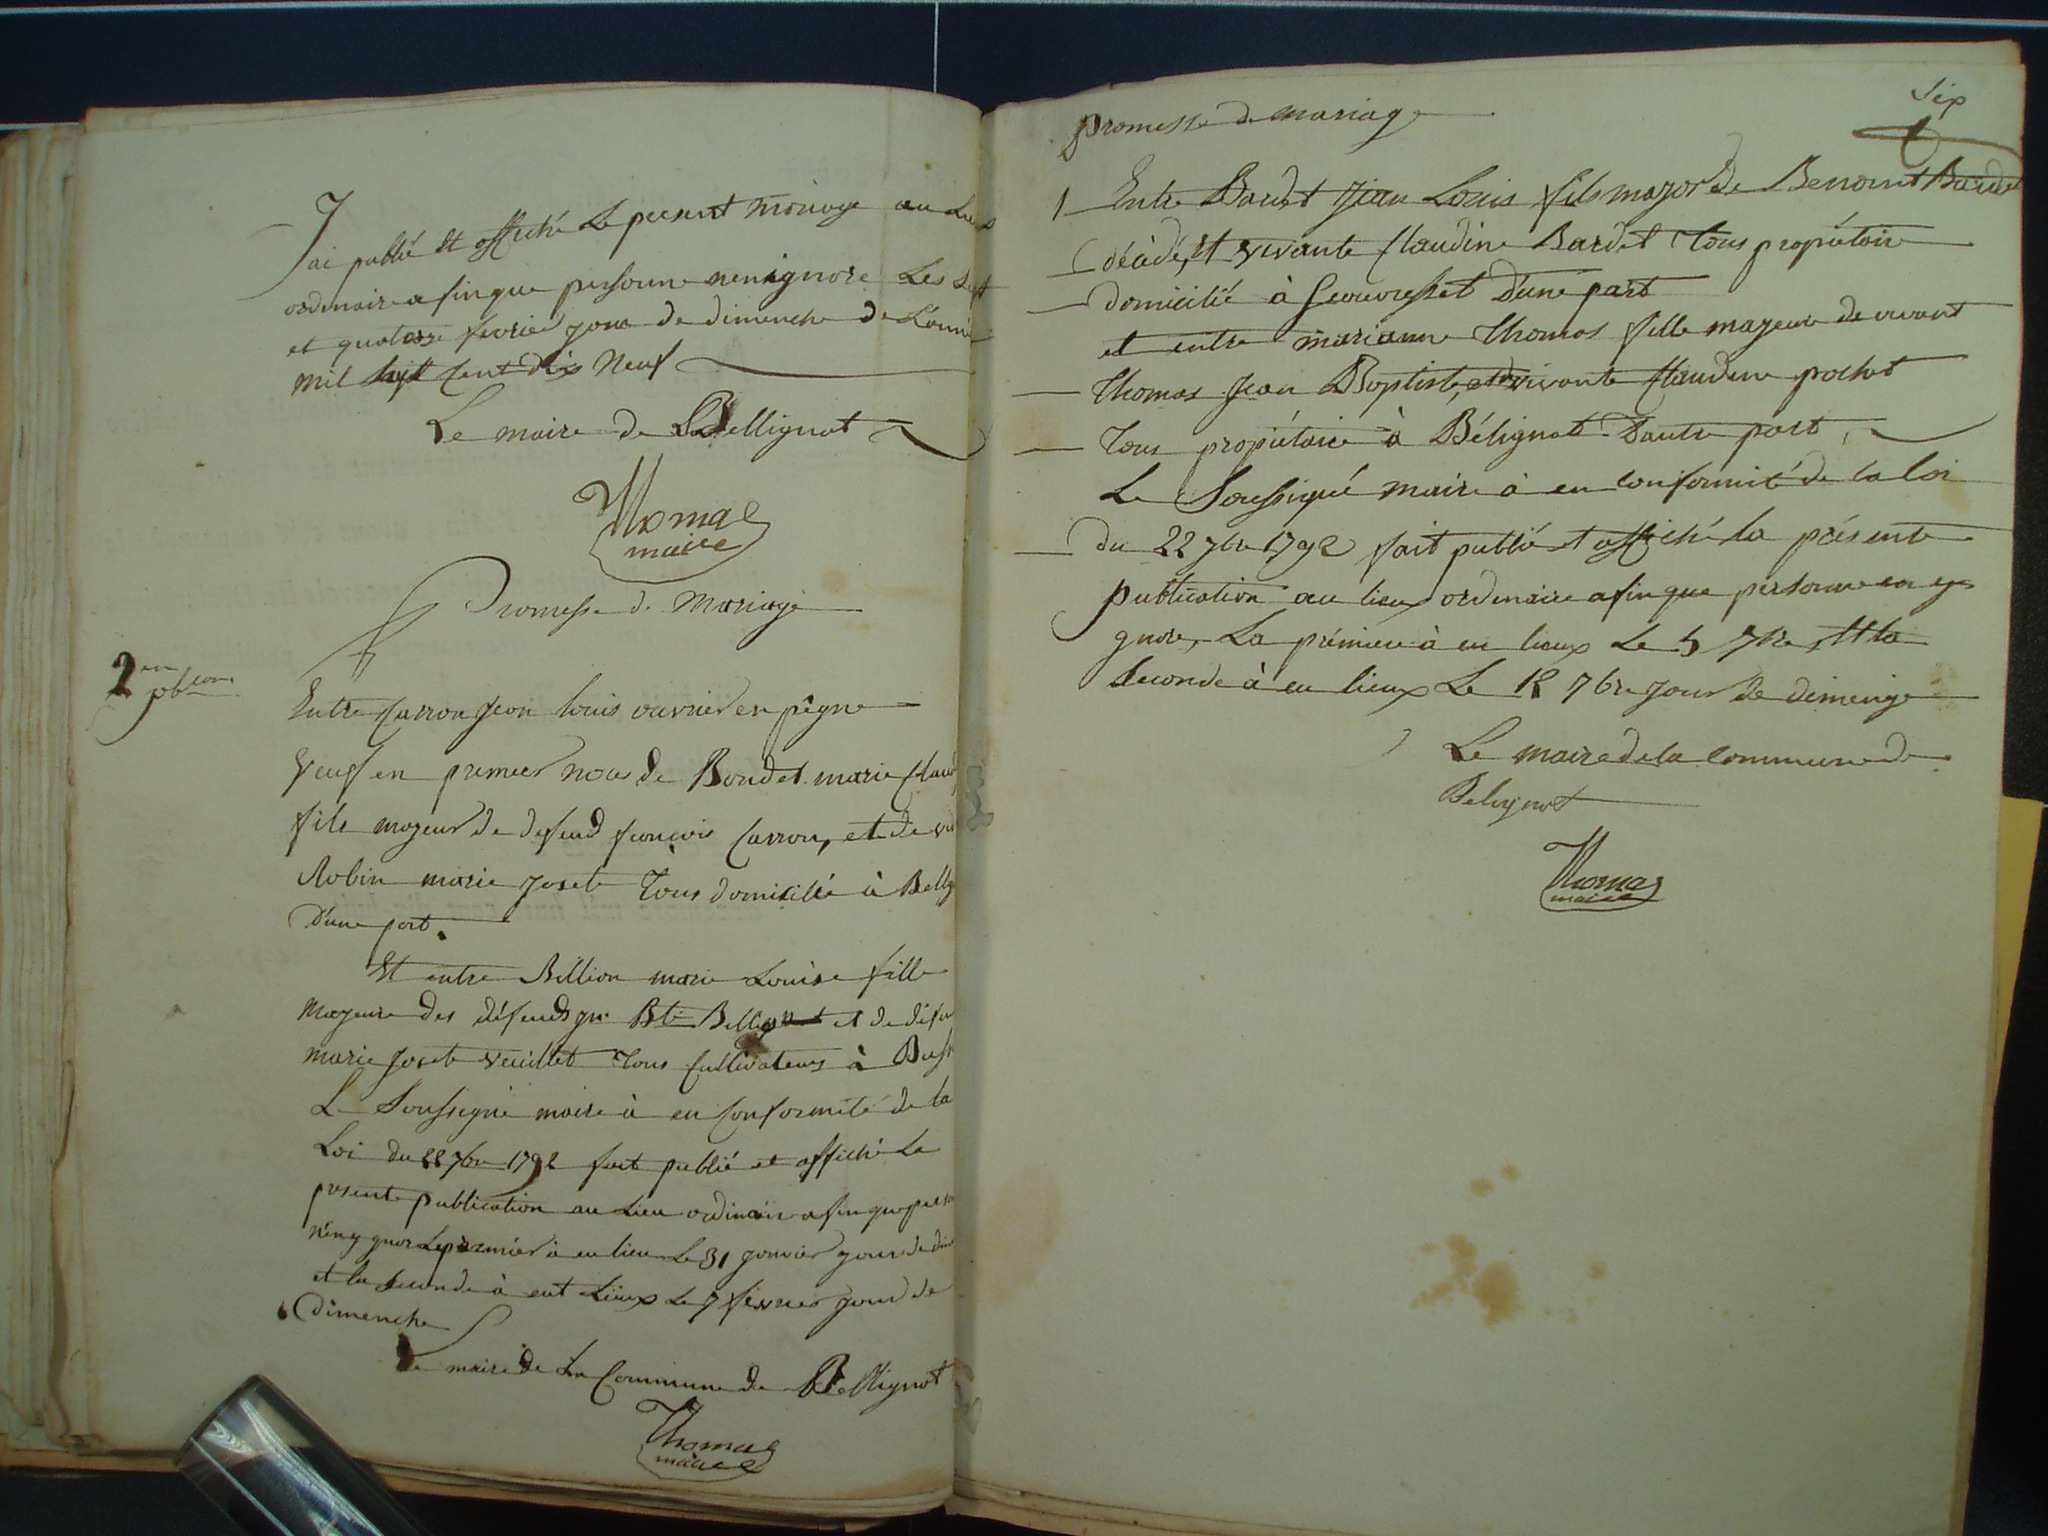 J'ai publié et affiché le present mariage au lieu
ordinaire afin que personne n'en ignore les sept
et quatorze fevrier jour de dimenche de l'anné
mil huit cent dix neuf
Le maire de Bellignat
Thomas
maire
Promesse de Mariage
2 em pb con
Entre Carron Jean louis ouvrier en pègne
veuf en premier noce de Bondet marie Claud
fils majeur de defeud françois Carron, et de viv
Robin marie Josete Tous domicilié à Bellig
D'une part.
Et entre Billion marie Louise fille
majeure des défeuds jn Bte et de défeu
marie Josete veuillet Tous Cultivateurs à
Le Soussigné maire à en Conformité de la
Loi du 22 7bre 1792 fait publié et affiché la
presente publication au Lieu ordinaire afin que perso
n'en ygnore Le premier à eu lieu Le 31 janvier jour de dim
et la seconde à eut Lieux Le 7 février jour de
Dimenche
Le maire de La Commune de Bellignat
Thomas
maire
Six
promesse de mariage
1 Entre Baudet Jean Louis fils major de Benoint Bardet
décédé, et vivante Claudine Bardet Tous propiétaire
domicilié à Geovresset D'une part
et entre marianne Thomas fille majeure de vivant
Thomas Jean Baptiste, et vivante Claudine pochet
Tous propiétaire à Bélignat D'autre part,
Le Soussigné maire à en conformité de la loi
du 22 7bre 1792 fait publié et affiché la présente
publication au lieux ordinaire afin que personne en y
gnore, La prémiere à eu lieux Le 5 7bre, et la
Seconde à eu lieux Le 12 7bre jour de dimenge
Le maire de la commune de
Belignat
Thomas
maire